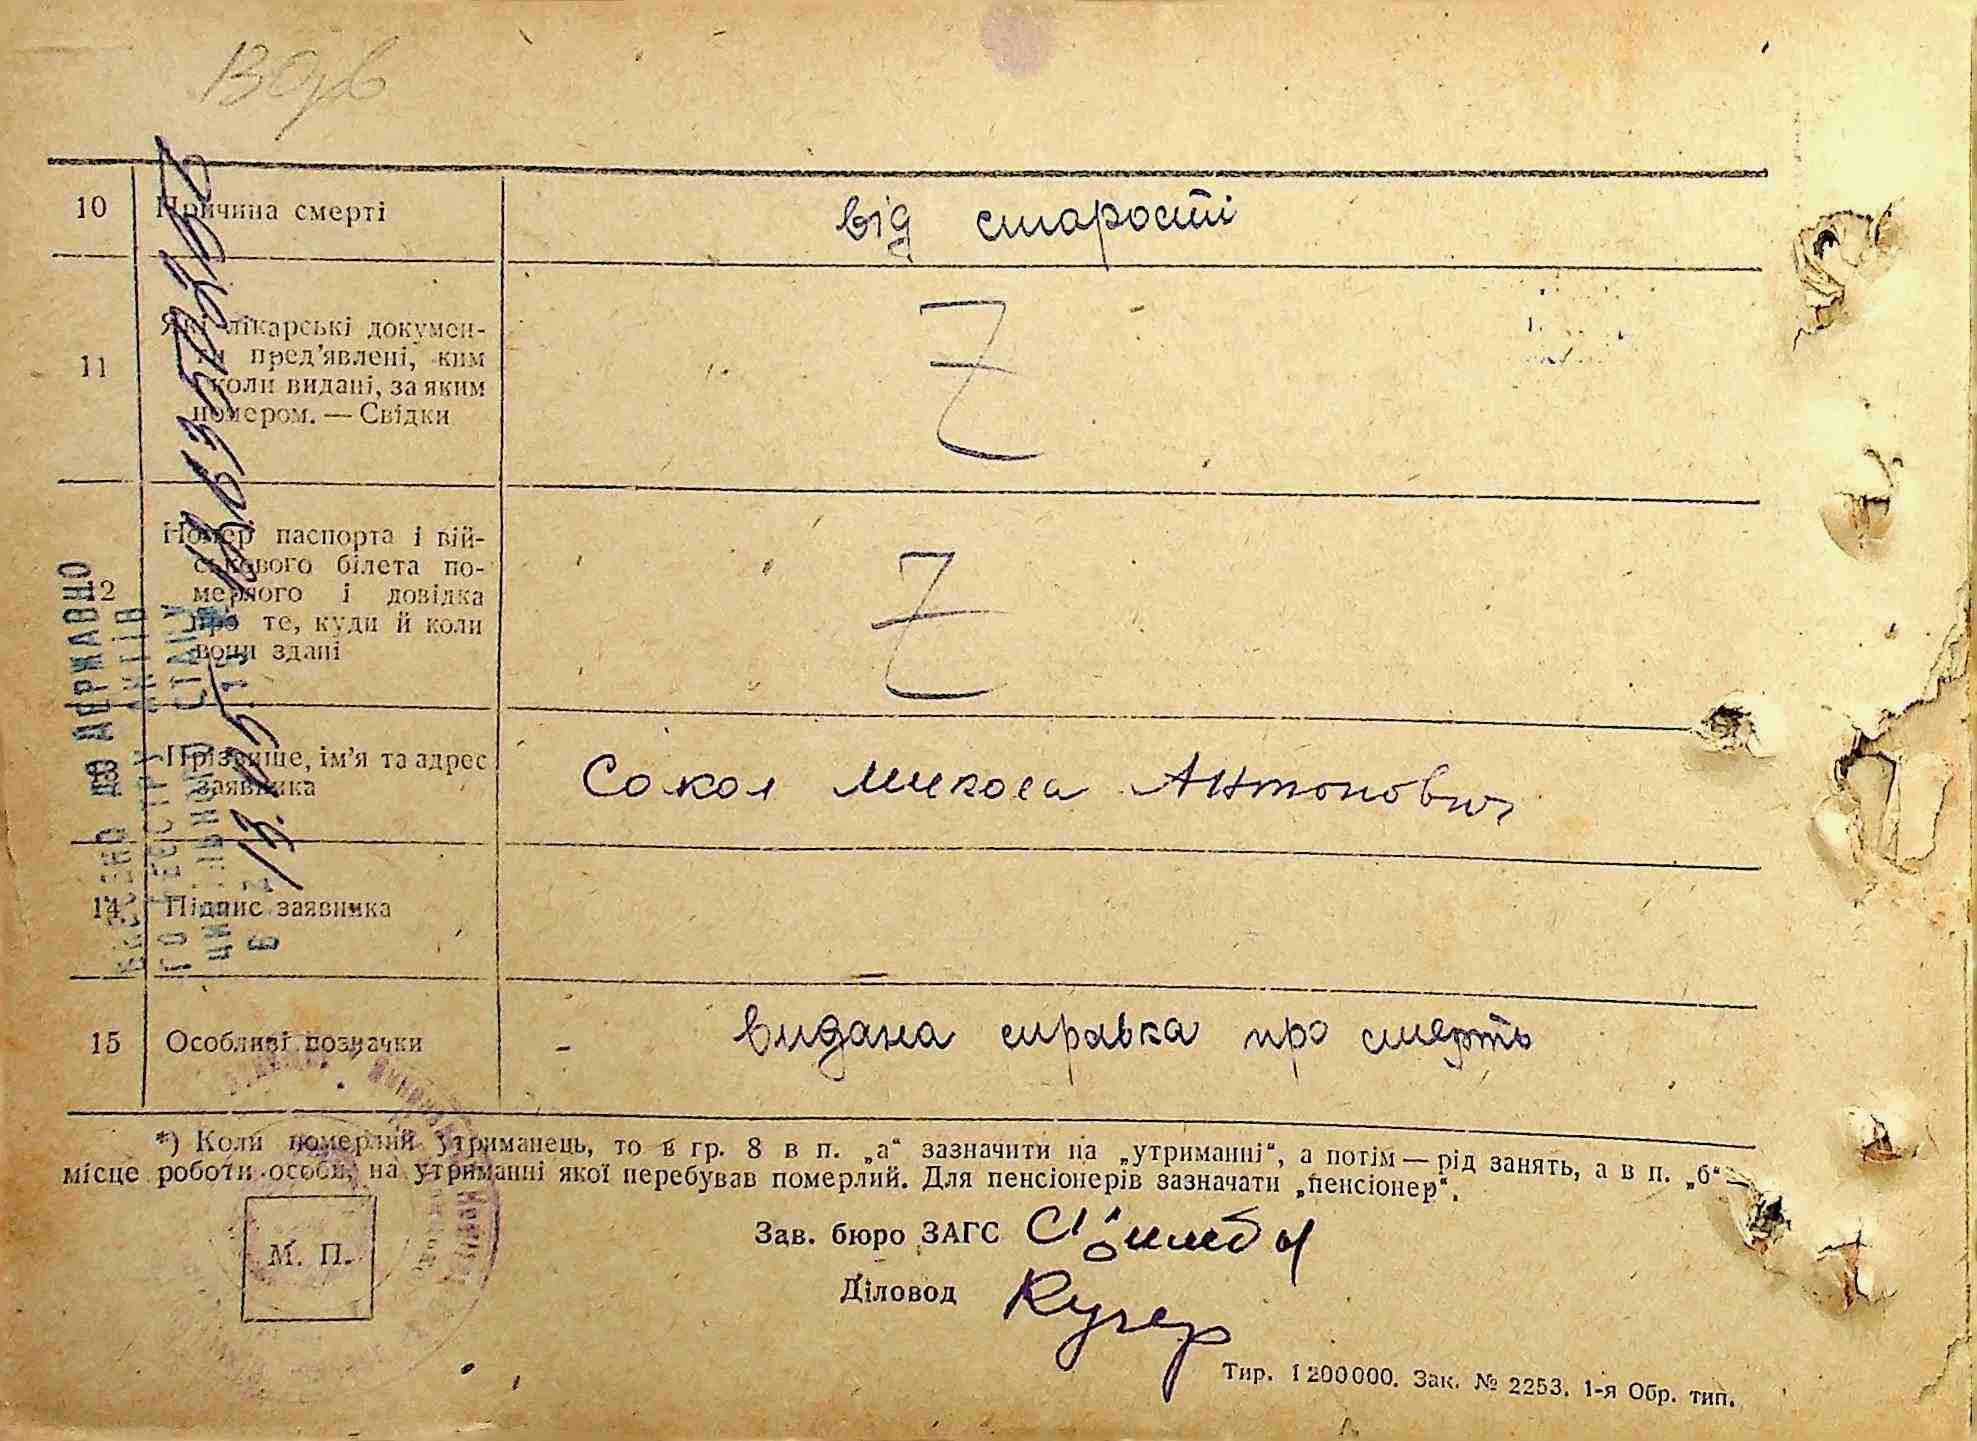 10 Причина смерті від старості
11 Які лікарські докумен-
ти пред'явлені, ким
і коли видані, за яким
номером. — Свідки
12 Номер паспорта і вій-
ськового білета по-
мерлого і довідка
про те, куди й коли
вони здані
13 Прізвище, ім'я та адрес
заявника
Сокол Микола Антонович
14 Підпис заявника
15 Особливі позначки - видана справка про смерть
*) Коли померлий утриманець, то в гр. 8 в п. „а“ зазначити на „утриманні“, а потім — рід занять, а в п. „б“ —
місце роботи особи, на утриманні якої перебував померлий. Для пенсіонерів зазначати „пенсіонер“.
Зав. бюро ЗАГС
Діловод Кучер
М. П.
Тир. 1200000. Зак. № 2253. 1-я Обр. тип.
ВНЕСЕНО ДО ДЕРЖАВНО
ГО РЕЄСТРУ АКТІВ
ЦИВІЛЬНОГО СТАНУ